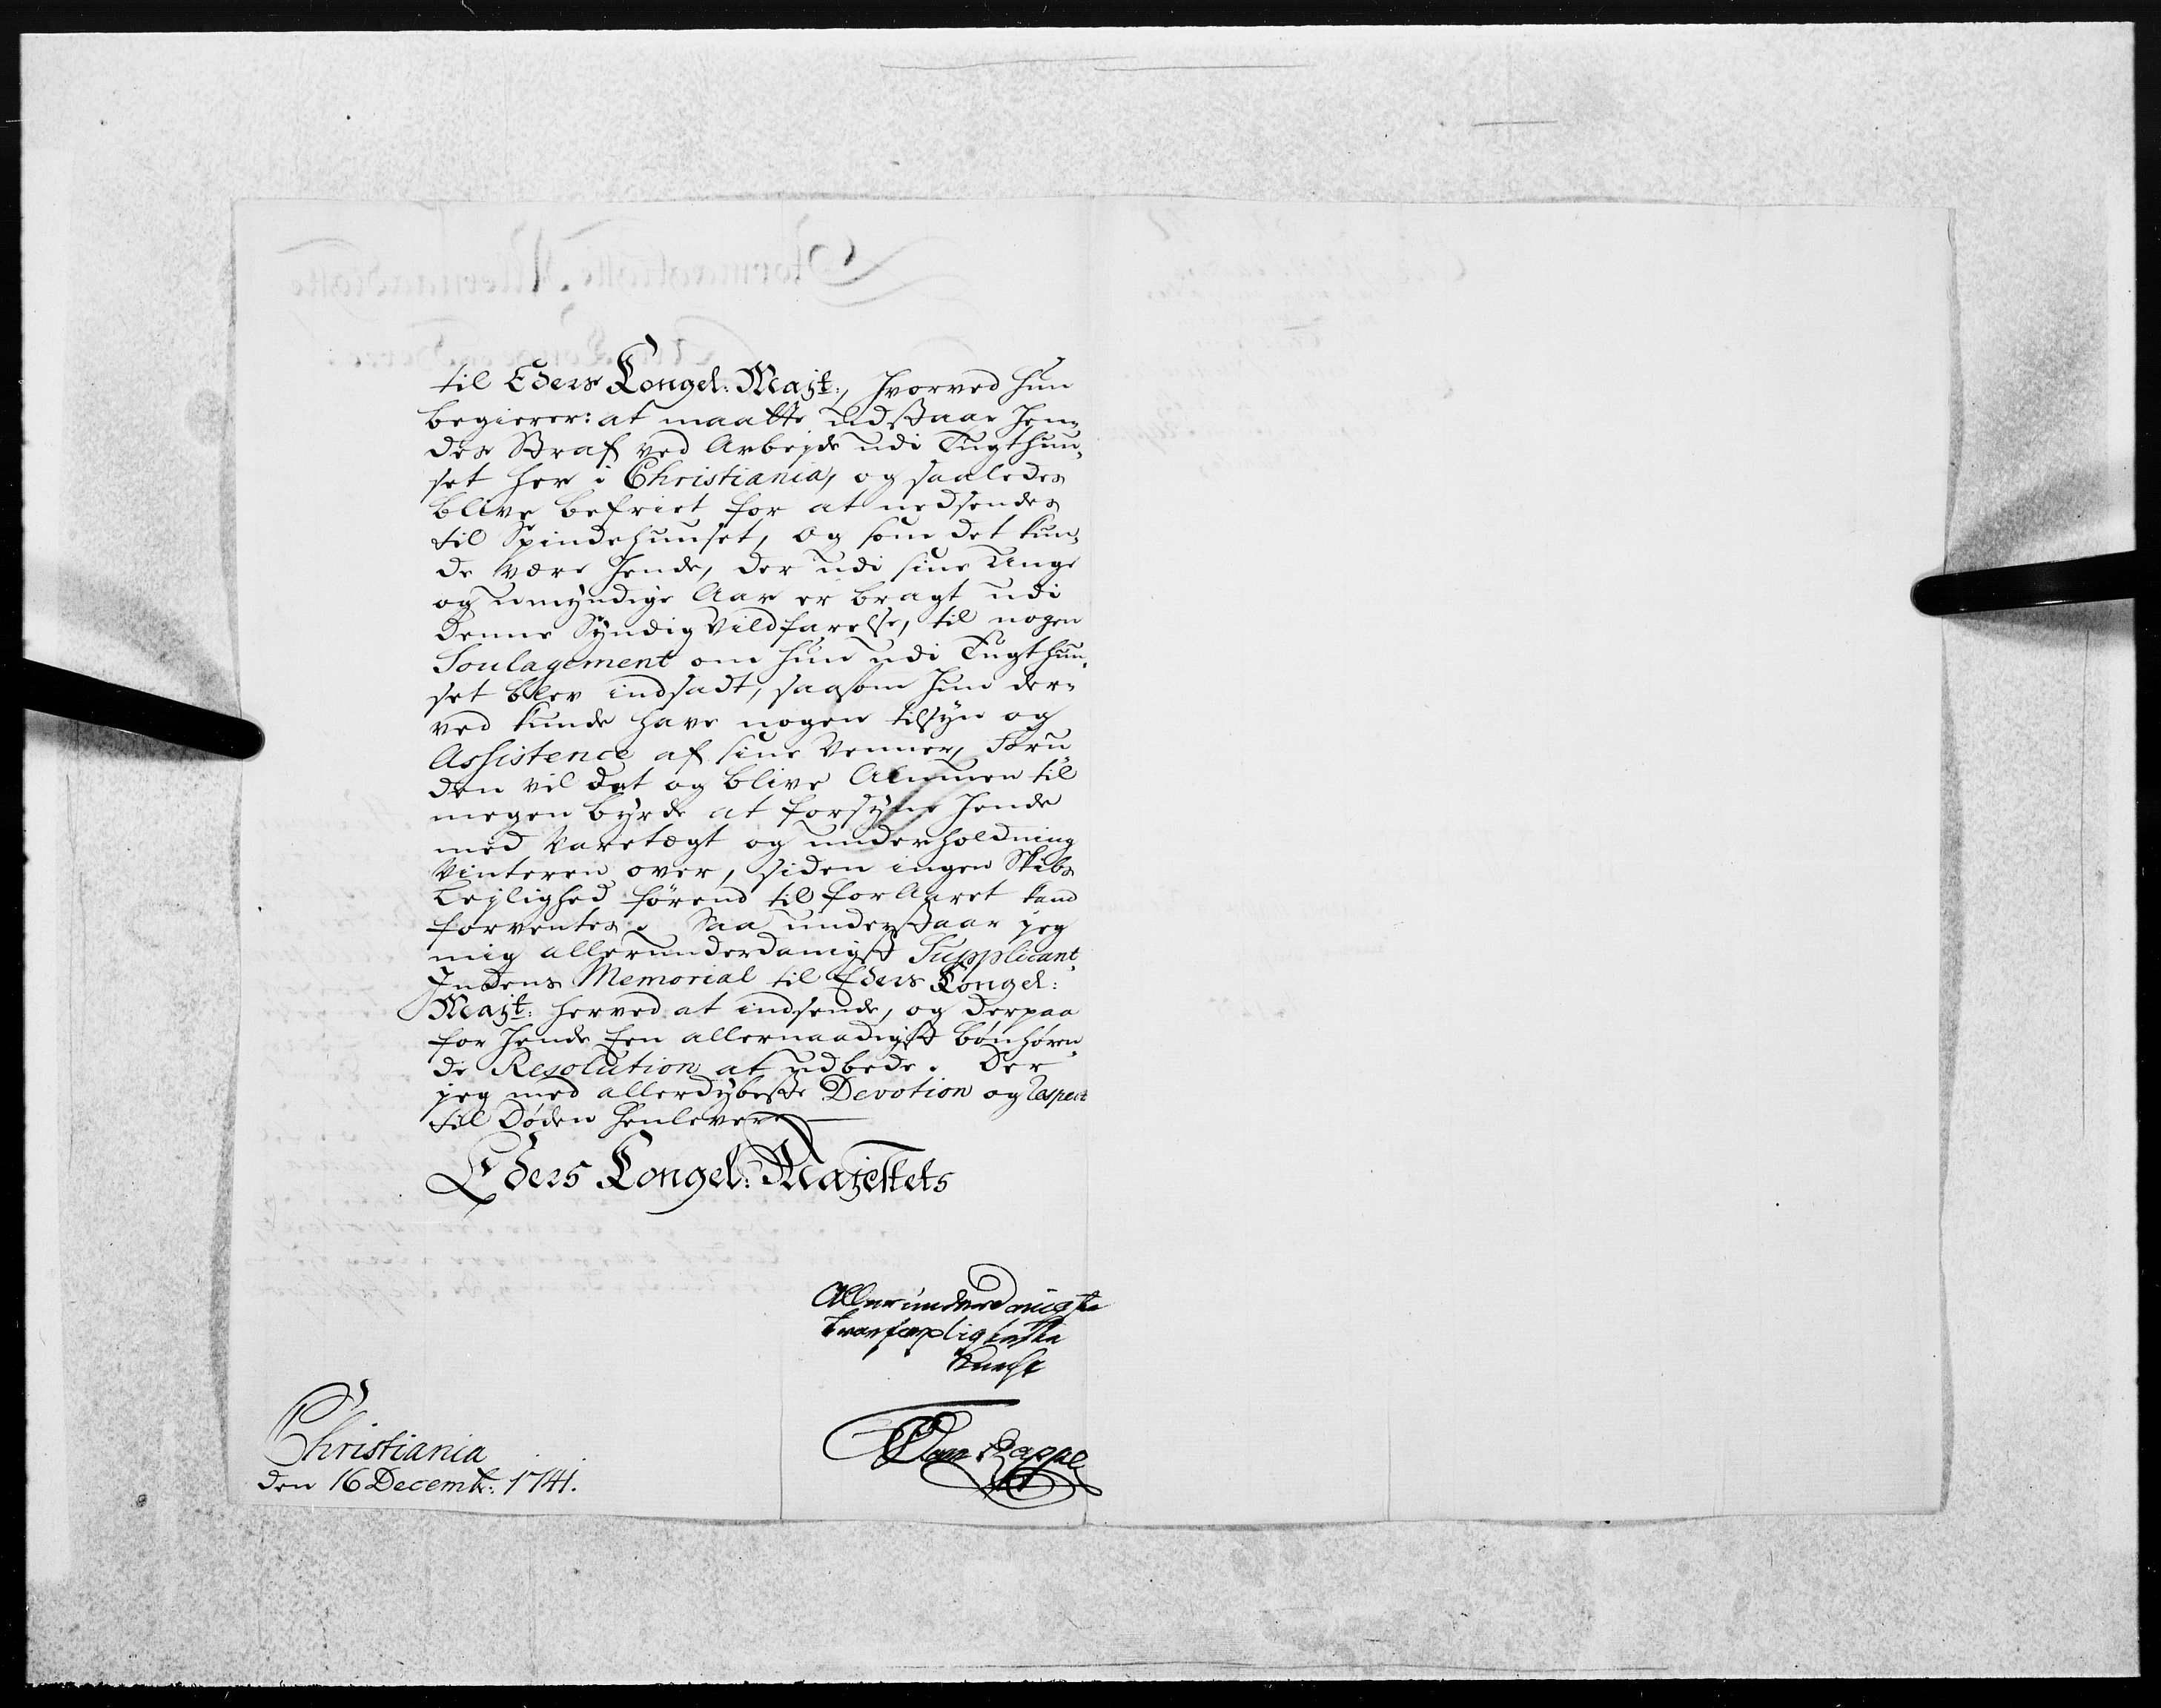 til Eders Kongel: Majt:, hvorved hun
begierer: at maatte udstaae hen„
des Straf ved Arbejde udi Tugthuu„
set her i Christiania, og saaledes
blive befriet for at nedsendes
til Spindehuuset, og som det kun„
de være hende, der udi sine Unge
og umyndige Aar er bragt udi
denne Syndig Vildfarelse, til nogen
Soulagement om hun udi Tugthuu„
set blev indsadt, saasom hun der„
ved kunde have nogen tilsyn og
Assistence af sine Venner, Foru„
den vil det og blive Almuen til
megen byrde at forsyne hende
med Varetægt og underholdning
Vinteren over, siden ingen Skibs
Lejlighed førend til for Aaret kand
forventes. Saa understaar jeg
mig allerunderdanigst Supplicant„
Indens Memorial til Eders Kongel:
Majt: herved at indsende, og derpaa
for hende Een allernaadigst bønhøren„
de Resolution at udbede. Der
jeg med allerdybeste Devotion og Respect
til Døden henlever
Eders Kongel: Majestets
Allerunderdanigste
Troepligtigste
Knecht
Rappe
Christiania
den 16 Decembr: 1741.